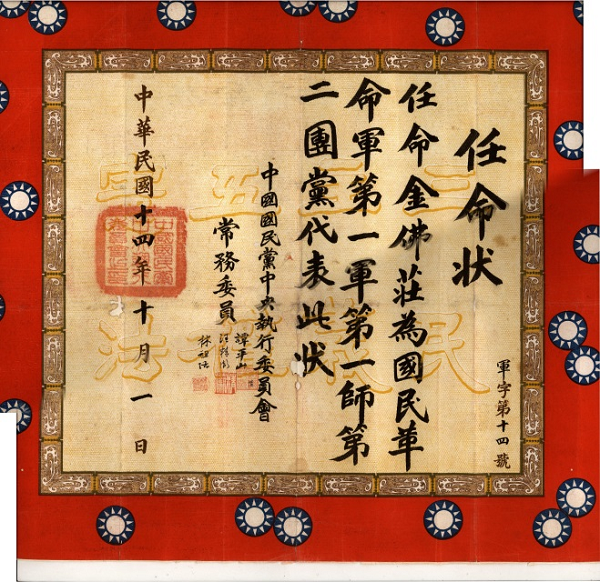 軍字第十四號
任命狀
任命金佛莊為國民革
命軍第一軍第一師第
二團黨代表此狀
中國國民黨中央執行委員會
常務委員
譚平山
汪精衛
林祖涵
中華民國十四年十月一日